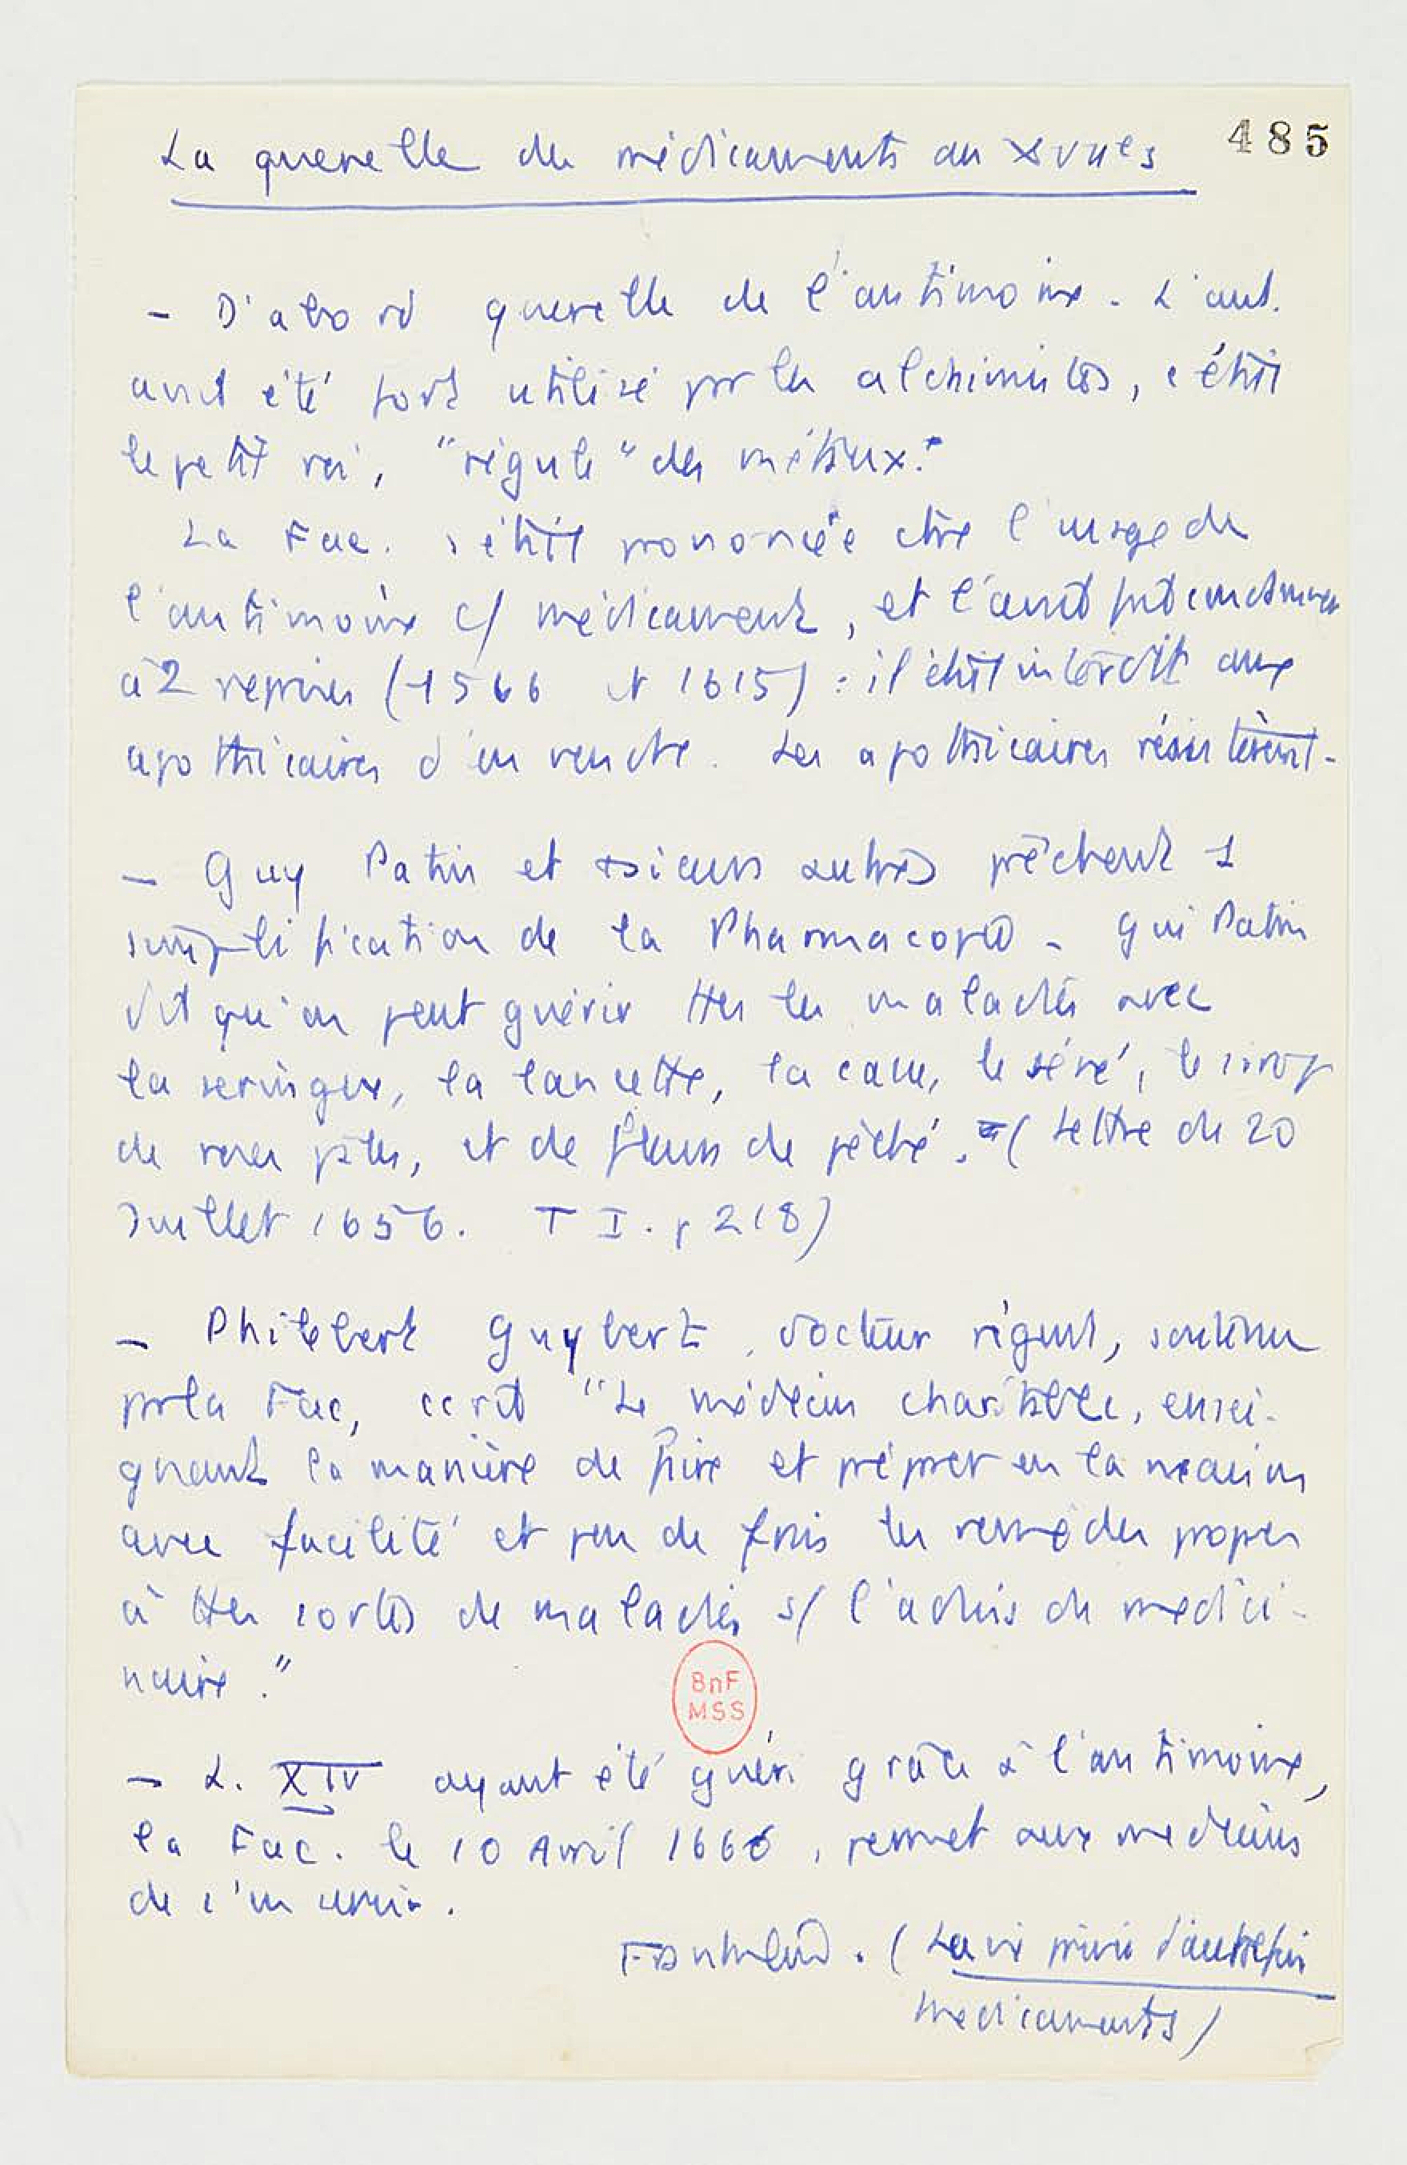 La querelle des médicaments au XVIIe s
485
- D'abord querelle de l'antimoine. L'ant.
avait été fort utilisé par les alchimistes, c'était
le petit roi, "régule" des métaux.
La Fac. s'était prononcée ctre l'usage de
l'antimoine c/ médicament, et l'avait fait
à 2 reprises (1566 et 1615) : il était interdit aux
apothicaires d'en vendre. Les apothicaires résistèrent.
- Guy Patin et autres prêchent 1
simplification de la Pharmacopée. Gui Patin
dit qu'on peut guérir ttes les maladies avec
la seringue, la lancette, la casse, le séné, le sirop
de roses pâles, et de fleurs de pêché. (Lettre du 20
Juillet 1656. T I. p 218)
- Philebert Guybert, docteur régent, soutenu
par la Fac, écrit "Le médecin charitable, ensei-
gnant la manière de faire et préparer en la maison
avec facilité et peu de frais les remèdes propres
à ttes sortes de maladies s/ l'advis du medeci-
naire."
BnF
MSS
- L. XIV ayant été guéri grâce à l'antimoine,
la Fac. le 10 Avril 1666, permet aux medecins
de s'en servir.
Franklin. (La vie privée d'autrefois
Medicaments)